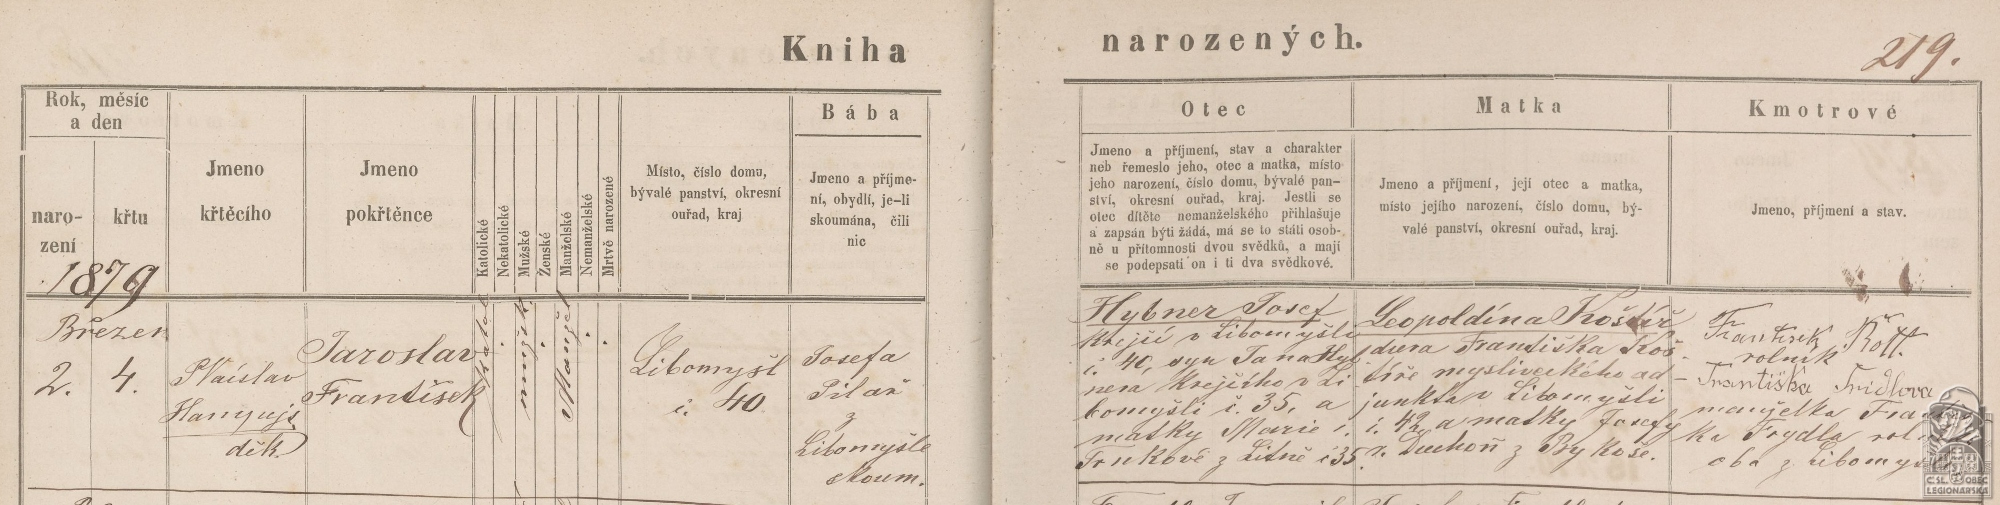 Kniha narozených.
219.
Rok, měsíc
a den
naro-
zení
křtu
Jmeno
křtěcího
Jmeno
pokřtěnce
Katolické
Nekatolické
Mužské
Ženské
Manželské
Nemanželské
Mrtvě narozené
Místo, číslo domu,
bývalé panství, okresní
ouřad, kraj
Bába
Jmeno a příjme-
ní, obydlí, je-li
skoumána, čili
nic
Otec
Jmeno a příjmení, stav a charakter
neb řemeslo jeho, otec a matka, místo
jeho narození, číslo domu, bývalé pan-
ství, okresní ouřad, kraj. Jestli se
otec dítěte nemanželského přihlašuje
a zapsán býti žádá, má se to státi osob-
ně u přítomnosti dvou svědků, a mají
se podepsati on i ti dva svědkové.
Matka
Jmeno a příjmení, její otec a matka,
místo jejího narození, číslo domu, bý-
valé panství, okresní ouřad, kraj.
Kmotrové
Jmeno, příjmení a stav.
1879
Březen
2.
4.
děk.
Jaroslav
František
katol
mužsk
Manžel
Libomyšl
č. 40
Josefa
Pilař
z
Libomyšle
skoum.
Hybner Josef
Krejčí v Libomyšli
č. 40, syn Jana Hyb
nera Krejčího v Li
bomyšli č. 35, a
matky Marie r.
Trnkové z Litně č 35
Leopoldina Koštíř
dcera Františka Koš-
tíře mysliveckého ad-
junkta v Libomyšli
č. 42 a matky Josefy
r. Duchoň z Bykoše.
František Rött.
rolník
Františka Fridlova
manželka Fran
ka Frydla rol
oba z Libomyšle
ČS. OBEC
LEGIONÁŘSKÁ